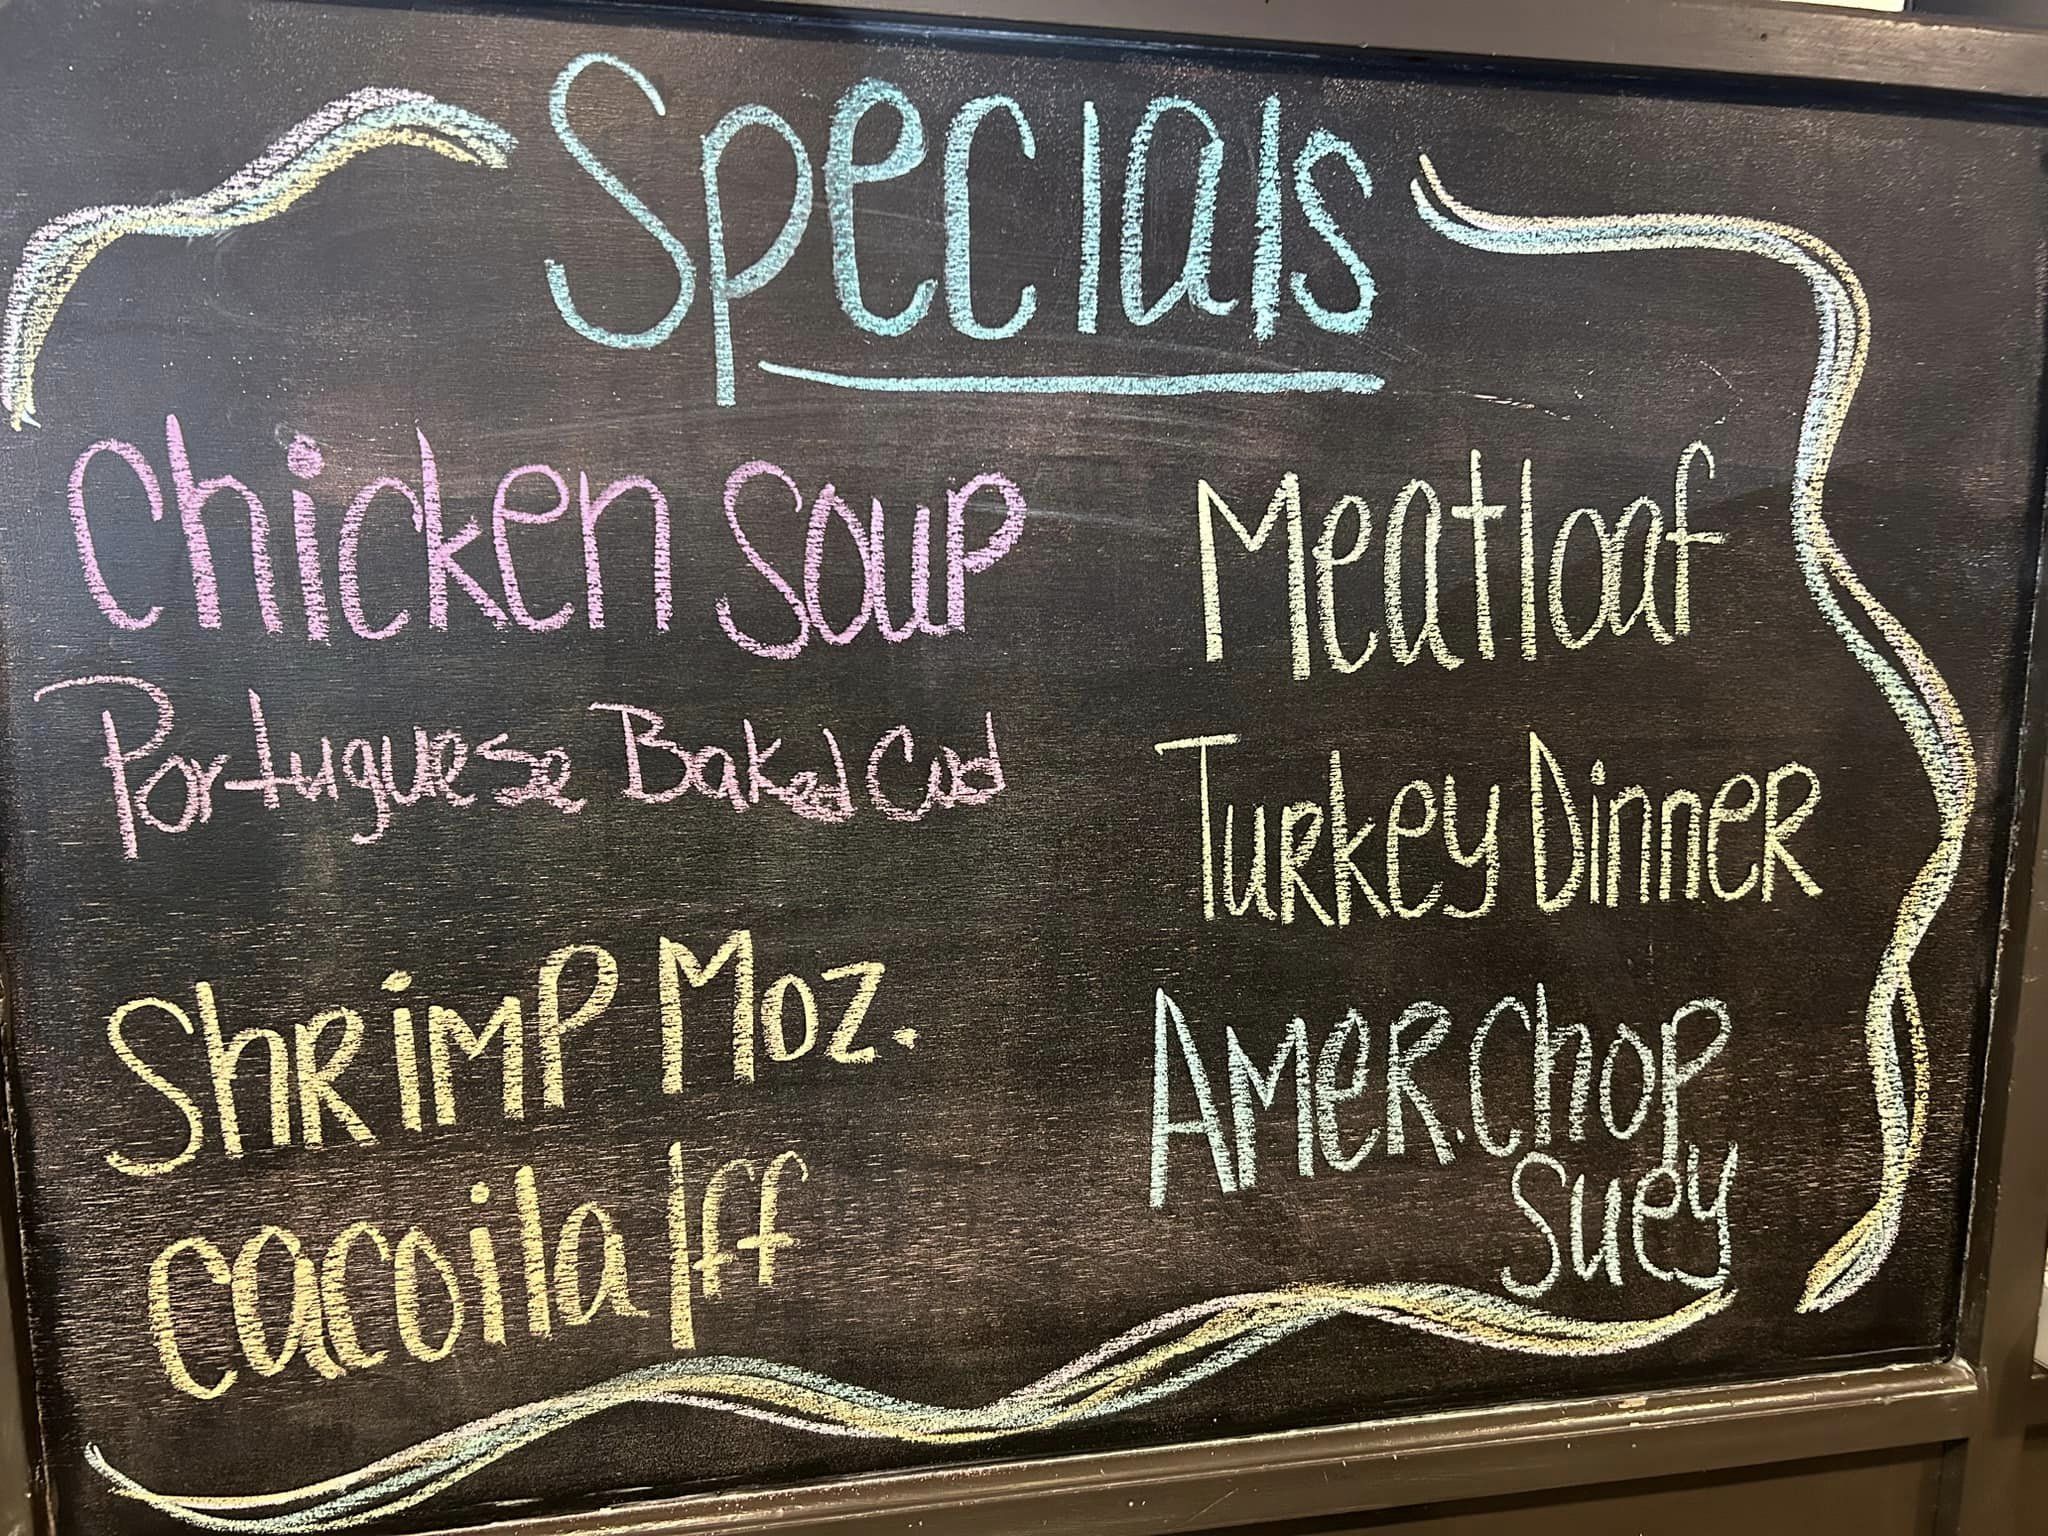 Specials
Chicken Soup
Portuguese Baked Cod
Shrimp Moz.
Cacoila /ff
Meatloaf
Turkey Dinner
Amer. Chop
Suey